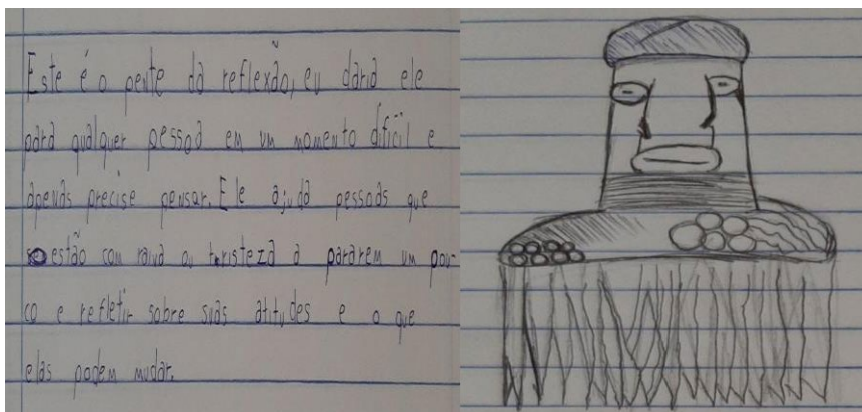 Este é o pente da reflexão, eu daria ele
para qualquer pessoa em um momento difícil e
apenas precise pensar. Ele ajuda pessoas que
estão com raiva ou tristeza a pararem um pou-
co e refletir sobre suas atitudes e o que
elas podem mudar.